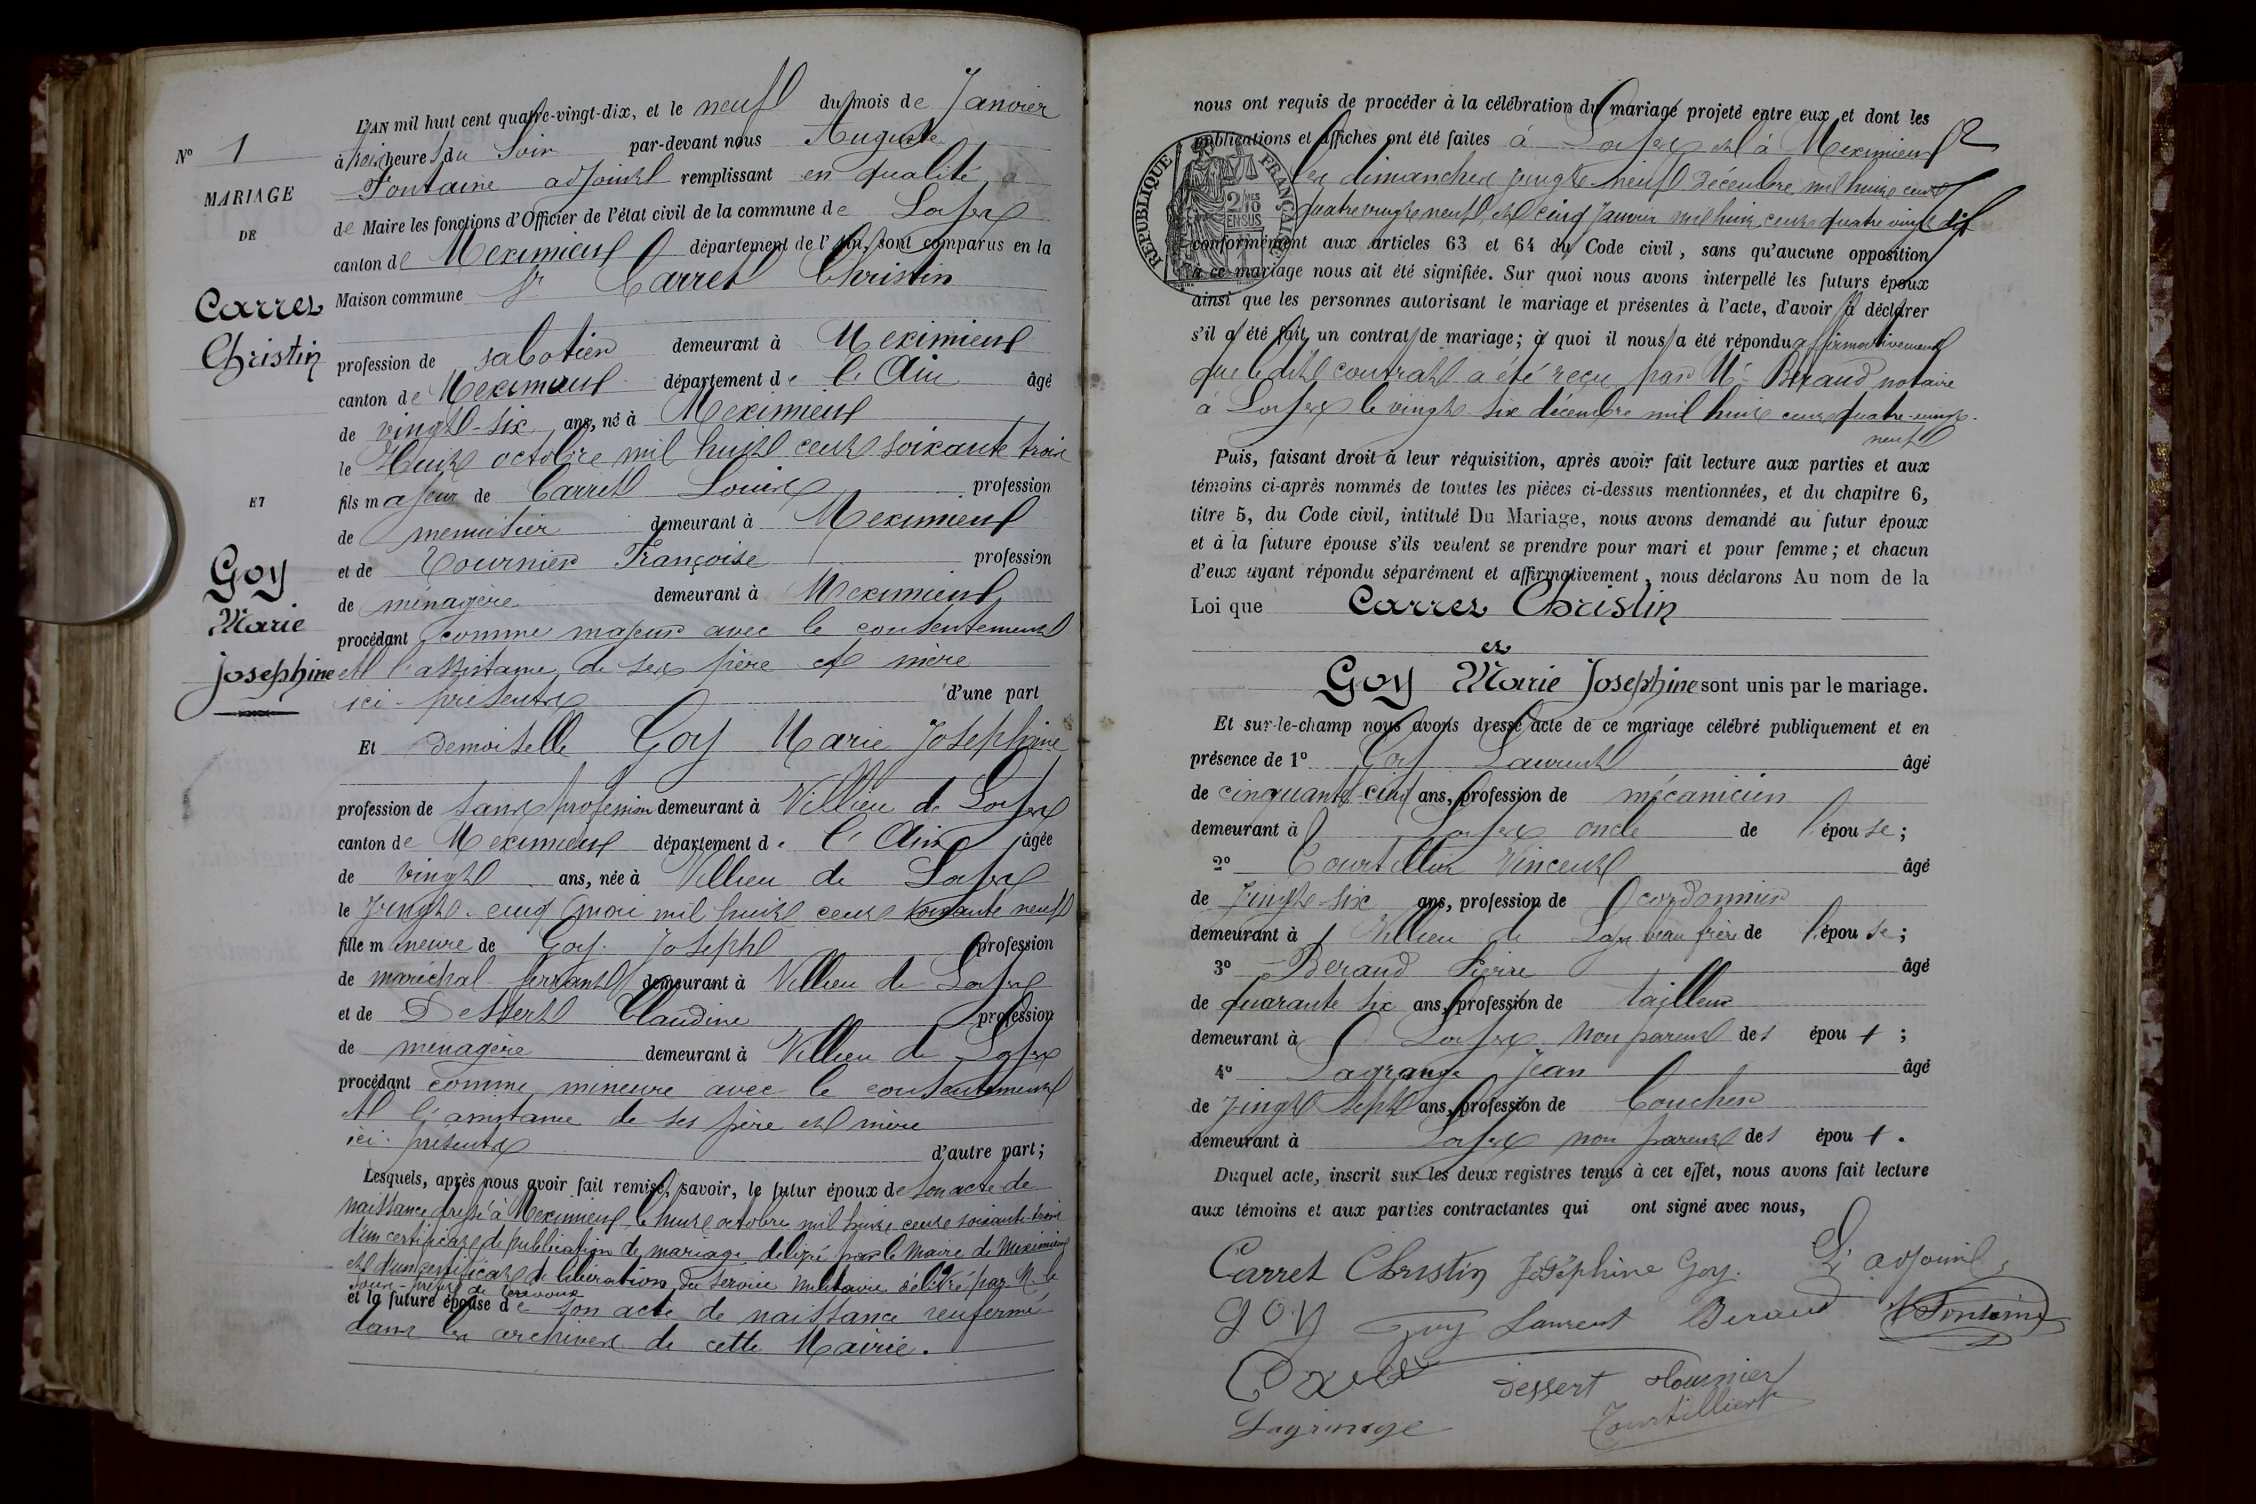 L'AN mil huit cent quatre-vingt-dix, et le neuf du mois de Janvier
N° 1
à trois heures du Soir par-devant nous Auguste
Fontaine adjoint remplissant en qualité
MARIAGE
de Maire les fonctions d'Officier de l'état civil de la commune de Loyes
DE
canton de Meximieux département de l'Ain, sont comparus en la
Maison commune Sr Carret Christin
Carret
Christin
profession de sabotier demeurant à Meximieux
canton de Meximieux département de l'Ain âgé
de vingt-six ans, né à Meximieux
le Huit octobre mil huit cent soixante trois
fils majeur de Carret Louis profession
ET
de menuisier demeurant à Meximieux
et de Tournier Françoise profession
Goy
Marie
Josephine
de ménagère demeurant à Meximieux
procédant comme majeur avec le consentement
et l'assistance de ses père et mère
ici-présents d'une part
Et demoiselle Goy Marie Josephine
profession de sans profession demeurant à Villieu de Loyes
canton de Meximieux département de l'Ain âgée
de vingt ans, née à Villieu de Loyes
le Vingt-cinq mai mil huit cent soixante neuf
fille mineure de Goy Joseph profession
de maréchal ferrant demeurant à Villieu de Loyes
et de Dessert Claudine profession
de ménagère demeurant à Villieu de Loyes
procédant comme mineure avec le consentement
et l'assistance de ses père et mère
ici-présents d'autre part;
Lesquels, après nous avoir fait remise, savoir, le futur époux de son acte de
naissance dressé à Meximieux le huit octobre mil huit cent soixante-trois
d'un certificat de publication de mariage délivré par le Maire de Meximieux
et d'un certificat de libération du service militaire délivré par M. le
sous-préfet de Trévoux
et la future épouse de son acte de naissance renfermé
dans les archives de cette Mairie.
nous ont requis de procéder à la célébration du mariage projeté entre eux et dont les
publications et affiches ont été faites à Loyes et à Meximieux
les dimanches vingt-neuf décembre mil huit cent
quatre vingt neuf, et cinq Janvier mil huit cent quatre vingt dix
RÉPUBLIQUE FRANÇAISE
2 MES 10
EN SUS
conformément aux articles 63 et 64 du Code civil, sans qu'aucune opposition
à ce mariage nous ait été signifiée. Sur quoi nous avons interpellé les futurs époux
ainsi que les personnes autorisant le mariage et présentes à l'acte, d'avoir à déclarer
s'il a été fait un contrat de mariage; à quoi il nous a été répondu affirmativement
que ledit contrat a été reçu par Me Béraud notaire
à Loyes le vingt-six décembre mil huit cent quatre-vingt-
neuf
Puis, faisant droit à leur réquisition, après avoir fait lecture aux parties et aux
témoins ci-après nommés de toutes les pièces ci-dessus mentionnées, et du chapitre 6,
titre 5, du Code civil, intitulé Du Mariage, nous avons demandé au futur époux
et à la future épouse s'ils veulent se prendre pour mari et pour femme; et chacun
d'eux ayant répondu séparément et affirmativement, nous déclarons Au nom de la
Loi que Carret Christin
et
Goy Marie Josephine sont unis par le mariage.
Et sur-le-champ nous avons dressé acte de ce mariage célébré publiquement et en
présence de 1° Goy Laurent âgé
de cinquante-cinq ans, profession de mécanicien
demeurant à Loyes oncle de l'épouse;
2° Courtillier Vincent âgé
de Vingt-six ans, profession de cordonnier
demeurant à Villieu de Loyes beau frère de l'épouse;
3° Beraud Pierre âgé
de quarante six ans, profession de tailleur
demeurant à Loyes non parent des épou x;
4° Lagrange Jean âgé
de Vingt sept ans, profession de Boucher
demeurant à Loyes non parent des épou x.
Duquel acte, inscrit sur les deux registres tenus à cet effet, nous avons fait lecture
aux témoins et aux parties contractantes qui ont signé avec nous,
Carret Christin Joséphine Goy. L'adjoint,
GOY Goy Laurent Beraud A Fontaine
Carret Dessert Tournier
Lagrange Courtillier